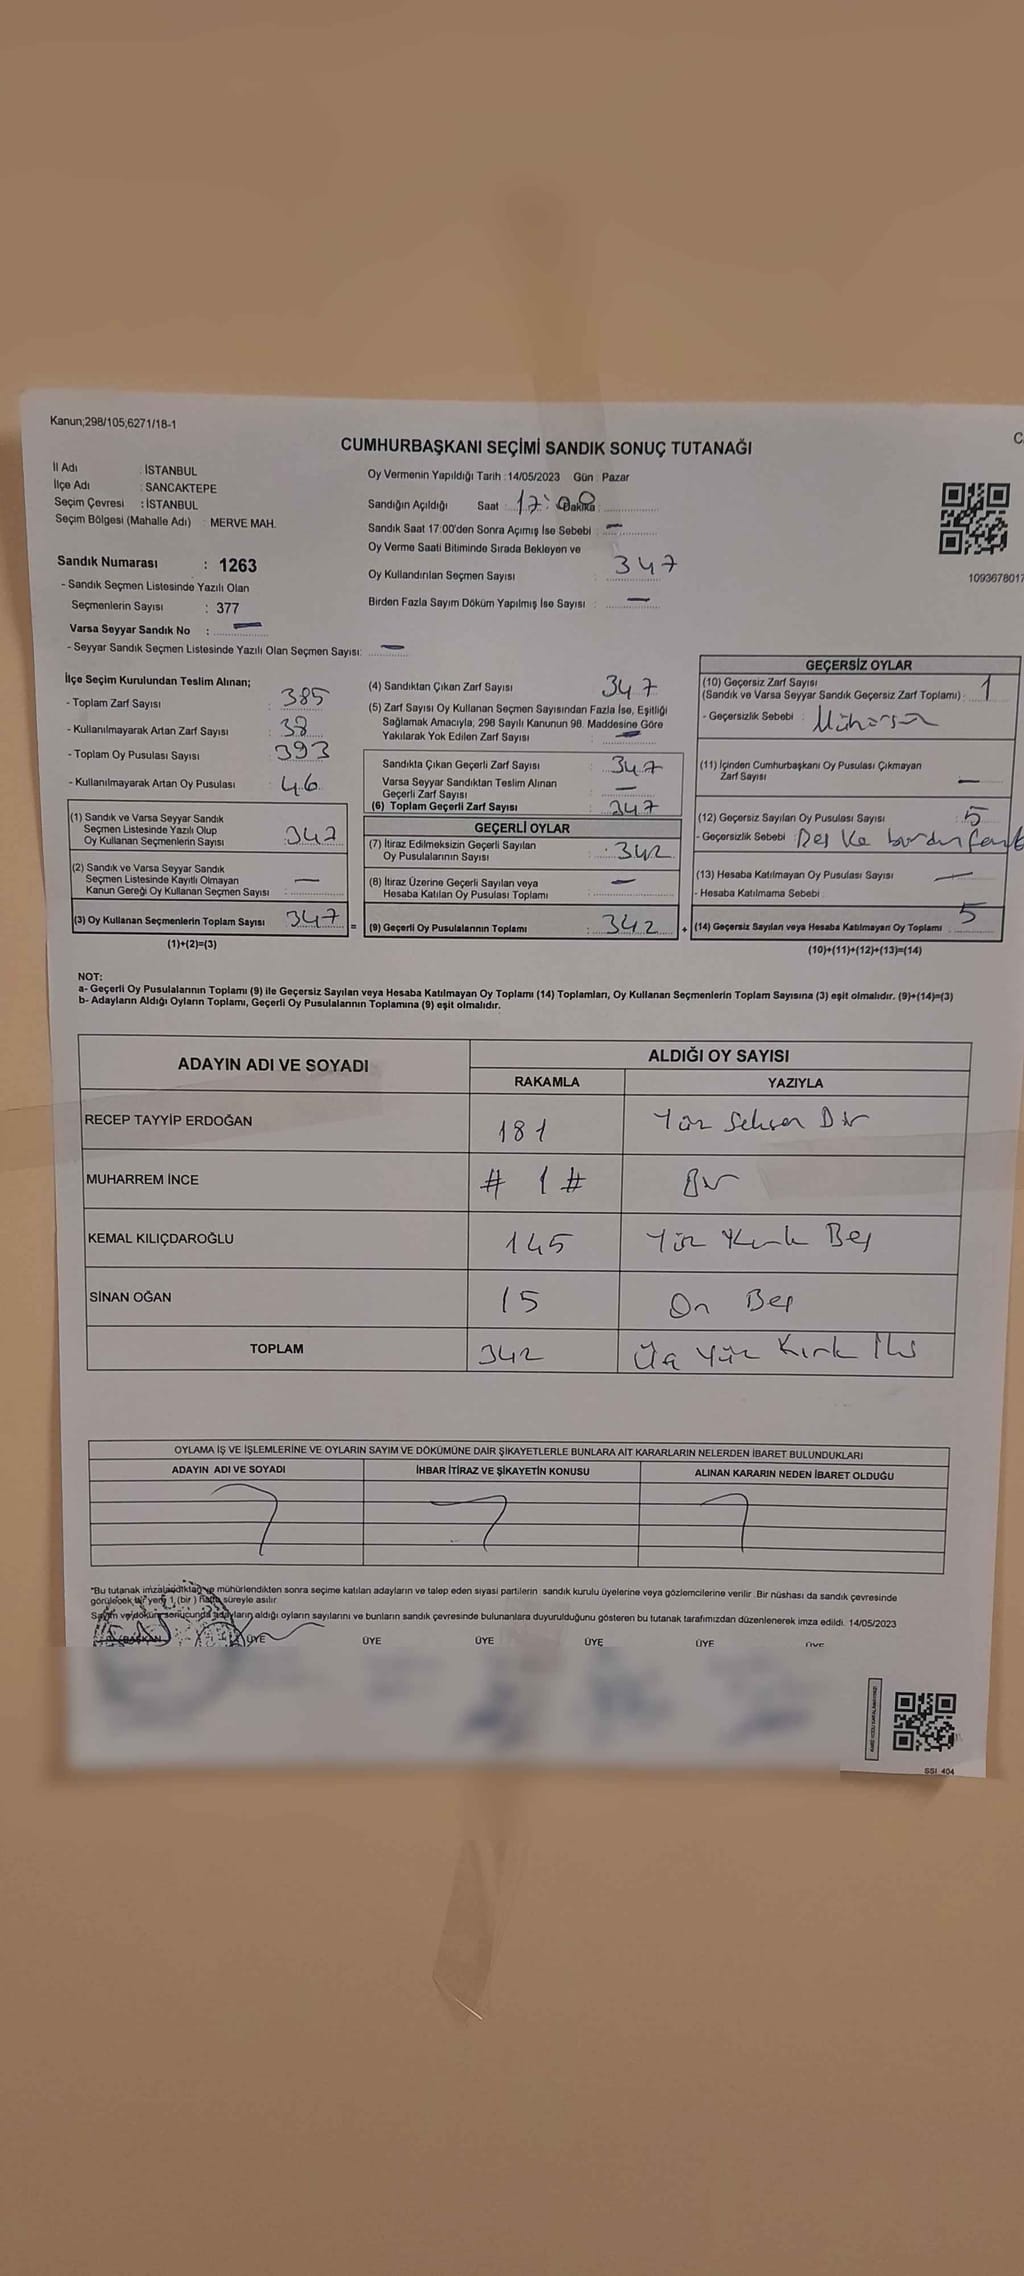 Kanun;298/105;6271/18-1
CUMHURBAŞKANI SEÇİMİ SANDIK SONUÇ TUTANAĞI
İl Adı : İSTANBUL
İlçe Adı : SANCAKTEPE
Seçim Çevresi : İSTANBUL
Seçim Bölgesi (Mahalle Adı) : MERVE MAH.
Oy Vermenin Yapıldığı Tarih : 14/05/2023 Gün : Pazar
Sandığın Açıldığı Saat : 17:00 Dakika :
Sandık Saat 17:00'den Sonra Açımış İse Sebebi : —
Oy Verme Saati Bitiminde Sırada Bekleyen ve
Oy Kullandırılan Seçmen Sayısı : 347
Birden Fazla Sayım Döküm Yapılmış İse Sayısı : —
1093678017
Sandık Numarası : 1263
- Sandık Seçmen Listesinde Yazılı Olan
Seçmenlerin Sayısı : 377
Varsa Seyyar Sandık No : —
- Seyyar Sandık Seçmen Listesinde Yazılı Olan Seçmen Sayısı: —
İlçe Seçim Kurulundan Teslim Alınan;
- Toplam Zarf Sayısı : 385
- Kullanılmayarak Artan Zarf Sayısı : 38
- Toplam Oy Pusulası Sayısı : 393
- Kullanılmayarak Artan Oy Pusulası : 46
(1) Sandık ve Varsa Seyyar Sandık
Seçmen Listesinde Yazılı Olup
Oy Kullanan Seçmenlerin Sayısı : 347
(2) Sandık ve Varsa Seyyar Sandık
Seçmen Listesinde Kayıtlı Olmayan
Kanun Gereği Oy Kullanan Seçmen Sayısı : —
(3) Oy Kullanan Seçmenlerin Toplam Sayısı 347 =
(1)+(2)=(3)
(4) Sandıktan Çıkan Zarf Sayısı : 347
(5) Zarf Sayısı Oy Kullanan Seçmen Sayısından Fazla İse, Eşitliği
Sağlamak Amacıyla; 298 Sayılı Kanunun 98. Maddesine Göre
Yakılarak Yok Edilen Zarf Sayısı : —
Sandıkta Çıkan Geçerli Zarf Sayısı : 347
Varsa Seyyar Sandıktan Teslim Alınan
Geçerli Zarf Sayısı : —
(6) Toplam Geçerli Zarf Sayısı : 347
GEÇERLİ OYLAR
(7) İtiraz Edilmeksizin Geçerli Sayılan
Oy Pusulalarının Sayısı : 342
(8) İtiraz Üzerine Geçerli Sayılan veya
Hesaba Katılan Oy Pusulası Toplamı : —
(9) Geçerli Oy Pusulalarının Toplamı : 342 +
GEÇERSİZ OYLAR
(10) Geçersiz Zarf Sayısı
(Sandık ve Varsa Seyyar Sandık Geçersiz Zarf Toplamı) : 1
- Geçersizlik Sebebi :
(11) İçinden Cumhurbaşkanı Oy Pusulası Çıkmayan
Zarf Sayısı —
(12) Geçersiz Sayılan Oy Pusulası Sayısı : 5
- Geçersizlik Sebebi :
(13) Hesaba Katılmayan Oy Pusulası Sayısı : —
- Hesaba Katılmama Sebebi :
(14) Geçersiz Sayılan veya Hesaba Katılmayan Oy Toplamı 5
(10)+(11)+(12)+(13)=(14)
NOT:
a- Geçerli Oy Pusulalarının Toplamı (9) ile Geçersiz Sayılan veya Hesaba Katılmayan Oy Toplamı (14) Toplamları, Oy Kullanan Seçmenlerin Toplam Sayısına (3) eşit olmalıdır. (9)+(14)=(3)
b- Adayların Aldığı Oyların Toplamı, Geçerli Oy Pusulalarının Toplamına (9) eşit olmalıdır.
ADAYIN ADI VE SOYADI
ALDIĞI OY SAYISI
RAKAMLA YAZIYLA
RECEP TAYYİP ERDOĞAN 181 Yüz Seksen Bir
MUHARREM İNCE # 1 # Bir
KEMAL KILIÇDAROĞLU 145 Yüz Kırk Beş
SİNAN OĞAN 15 On Beş
TOPLAM 342 Üç Yüz Kırk İki
OYLAMA İŞ VE İŞLEMLERİNE VE OYLARIN SAYIM VE DÖKÜMÜNE DAİR ŞİKAYETLERLE BUNLARA AİT KARARLARIN NELERDEN İBARET BULUNDUKLARI
ADAYIN ADI VE SOYADI İHBAR İTİRAZ VE ŞİKAYETİN KONUSU ALINAN KARARIN NEDEN İBARET OLDUĞU
*Bu tutanak imzalandıktan ve mühürlendikten sonra seçime katılan adayların ve talep eden siyasi partilerin sandık kurulu üyelerine veya gözlemcilerine verilir. Bir nüshası da sandık çevresinde
görülecek bir yere 1 (bir) hafta süreyle asılır.
Sayım ve döküm sonucunda adayların aldığı oyların sayılarını ve bunların sandık çevresinde bulunanlara duyurulduğunu gösteren bu tutanak tarafımızdan düzenlenerek imza edildi. 14/05/2023
BAŞKAN ÜYE ÜYE ÜYE ÜYE ÜYE ÜYE
SSİ_404